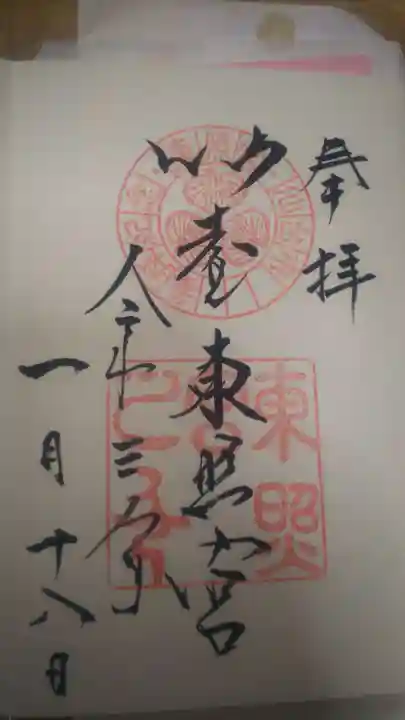 奉拝
仙臺東照宮
令和三年
一月十八日
東照宮